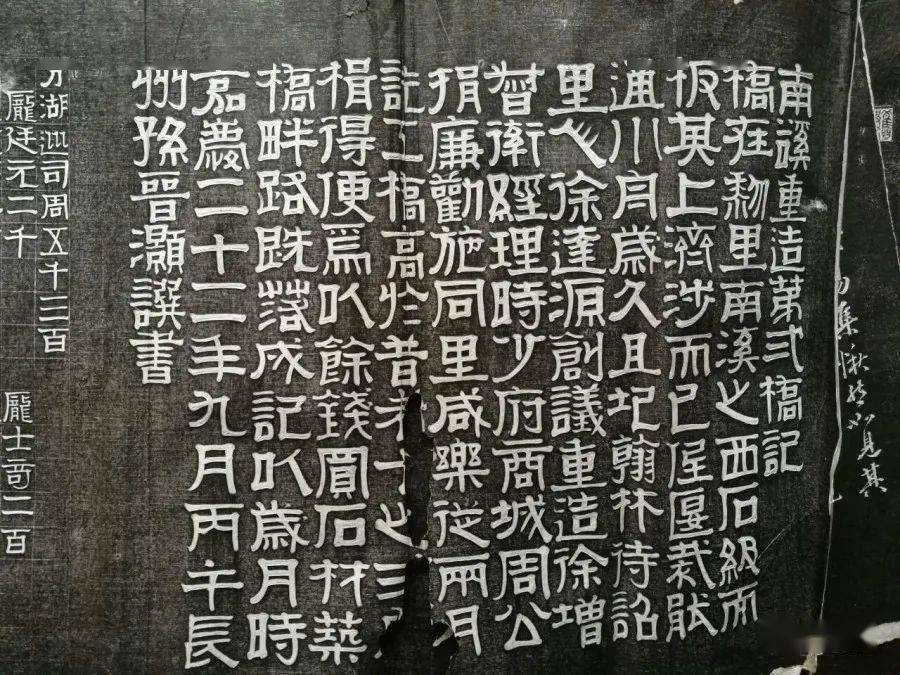 集
如見其
南谿重造第弍橋記
橋在黎里南溪之西石級而
板其上濟涉而已厓匽栽肰
通川月歲久且圮翰林待詔
里人徐達源創議重造徐增
督衛經理時少府商城周公
捐廉勸施同里咸樂從兩月
訖工橋高於昔者十之三
楫得便焉以餘錢買石材築
橋畔路既落成記以歲月時
嘉慶二十二年九月丙午長
州孫晉灝譔書
分湖巡司周五千三百
龐廷元二千
龐士奇二百